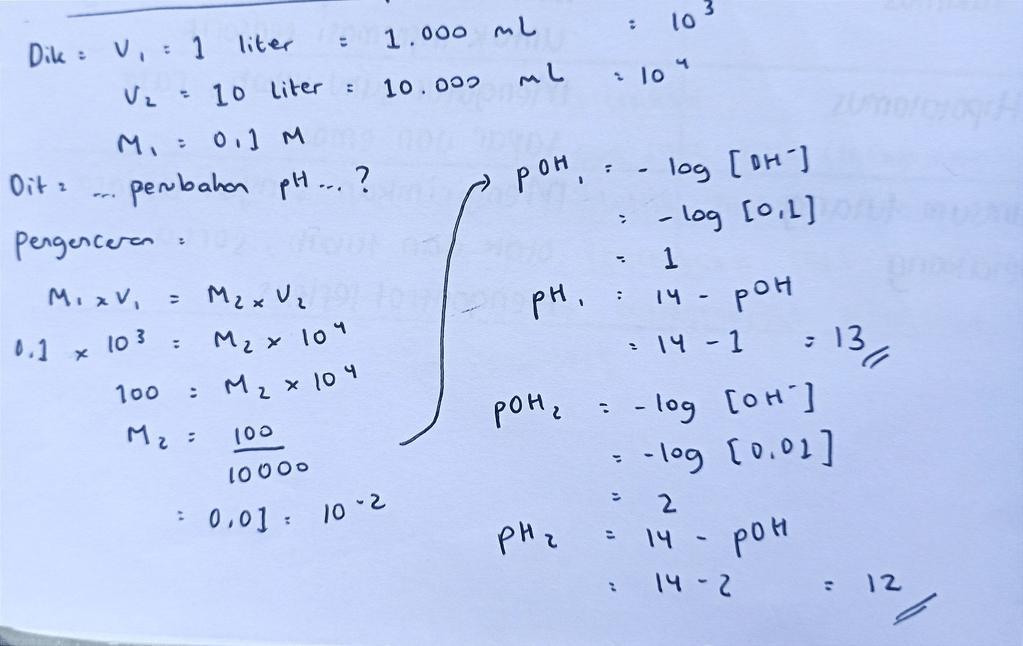 Dik : V₁ : 1 liter = 1.000 mL : 10³
V₂ = 10 liter : 10.000 mL : 10⁴
M₁ : 0,1 M
Dit : ... perubahan pH ... ?
Pengenceran :
M₁ x V₁ = M₂ x V₂
0,1 x 10³ : M₂ x 10⁴
100 : M₂ x 10⁴
M₂ : 100
10000
: 0,01 : 10⁻²
pOH₁ : - log [OH⁻]
= - log [0,1]
= 1
pH₁ : 14 - pOH
: 14 - 1 : 13
pOH₂ = - log [OH⁻]
= - log [0,01]
= 2
pH₂ = 14 - pOH
: 14 - 2 : 12